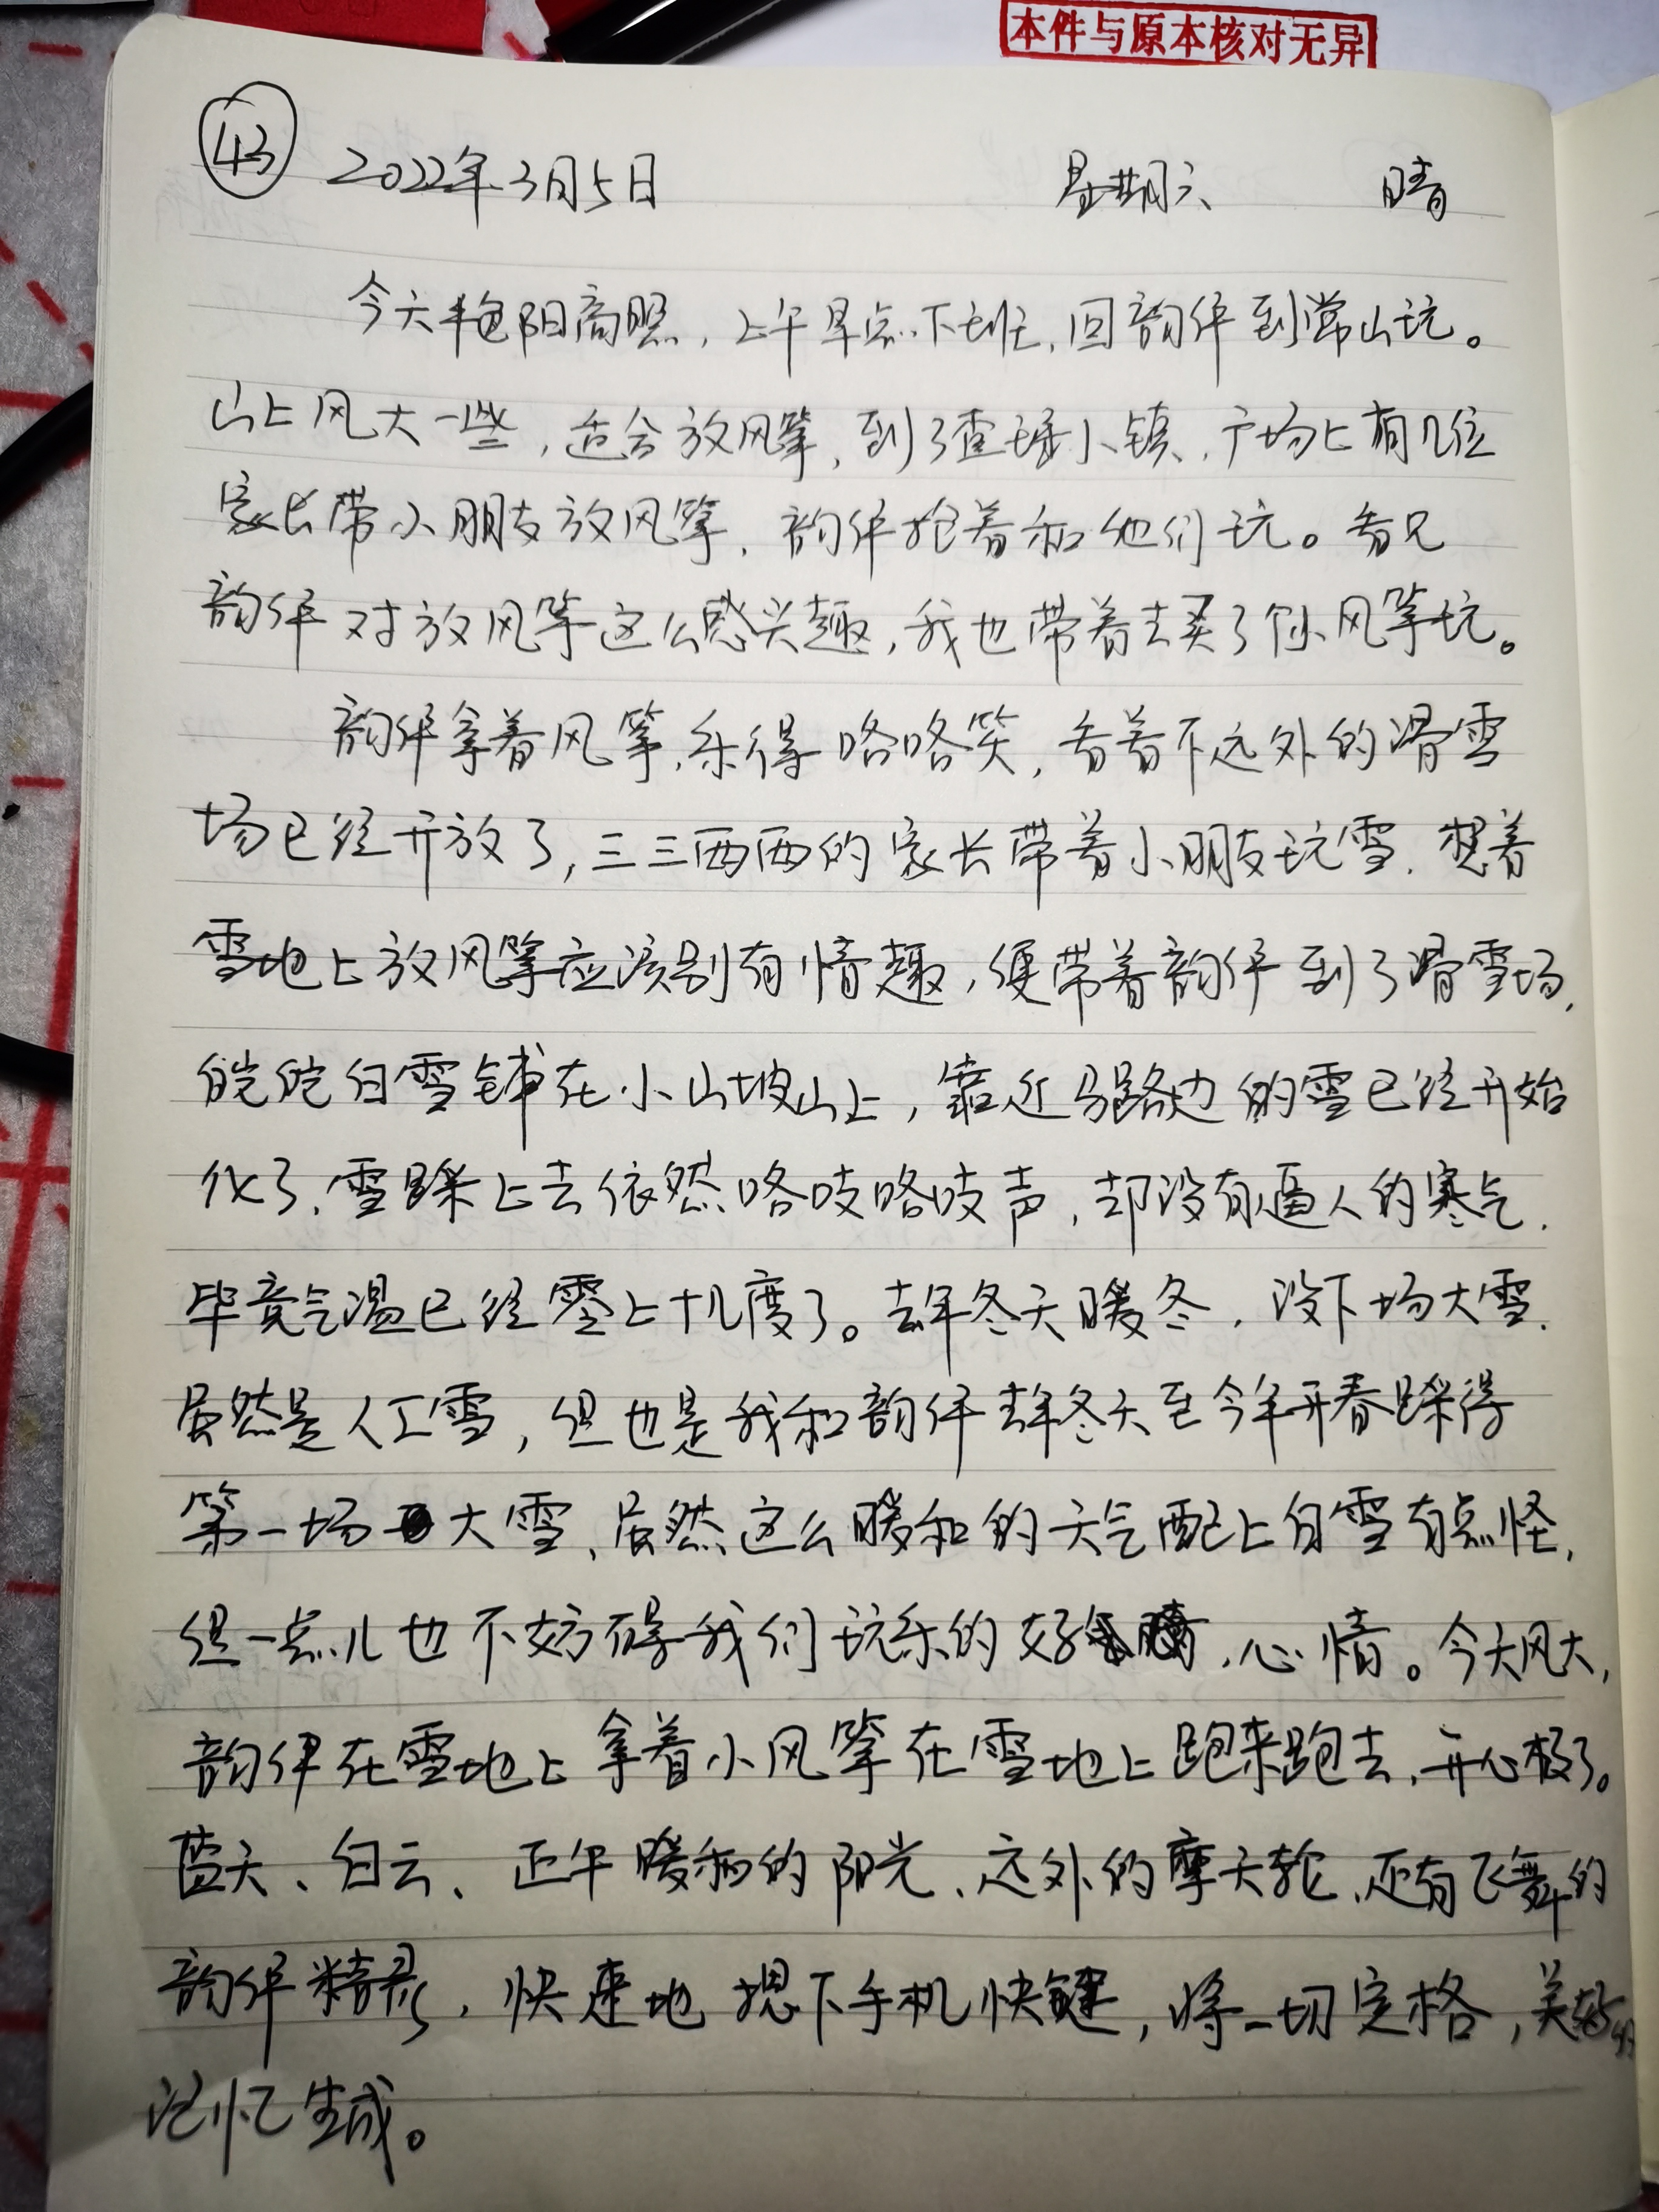 本件与原本核对无异
43 2022年3月5日 星期六 晴
今天艳阳高照，上午早点下班，回韵伴到常山玩。
山上风大一些，适合放风筝，到了查理小镇，广场上有几位
家长带小朋友放风筝，韵伴抢着和他们玩。看见
韵伴对放风筝这么感兴趣，我也带着去买了个小风筝玩。
韵伴拿着风筝，乐得咯咯笑，看着不远处的滑雪
场已经开放了，三三西西的家长带着小朋友玩雪，想着
雪地上放风筝应该别有情趣，便带着韵伴到了滑雪场，
皑皑白雪铺在小山坡山上，靠近马路边的雪已经开始
化了，雪踩上去依然咯吱咯吱声，却没有逼人的寒气，
毕竟气温已经零上十几度了。去年冬天暖冬，没下场大雪，
虽然是人工雪，但也是我和韵伴去年冬天至今年开春踩得
第一场大雪，虽然这么暖和的天气配上白雪有点怪，
但一点儿也不妨碍我们玩乐的好，心情。今天风大，
韵伴在雪地上拿着小风筝在雪地上跑来跑去，开心极了。
蓝天、白云、正午暖和的阳光、远处的摩天轮，还有飞舞的
韵伴精灵，快速地摁下手机快键，将一切定格，美好的
记忆生成。